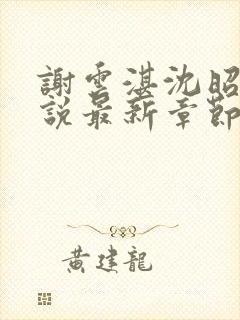 謝雲湛沈昭
說最新章節
黃建龍